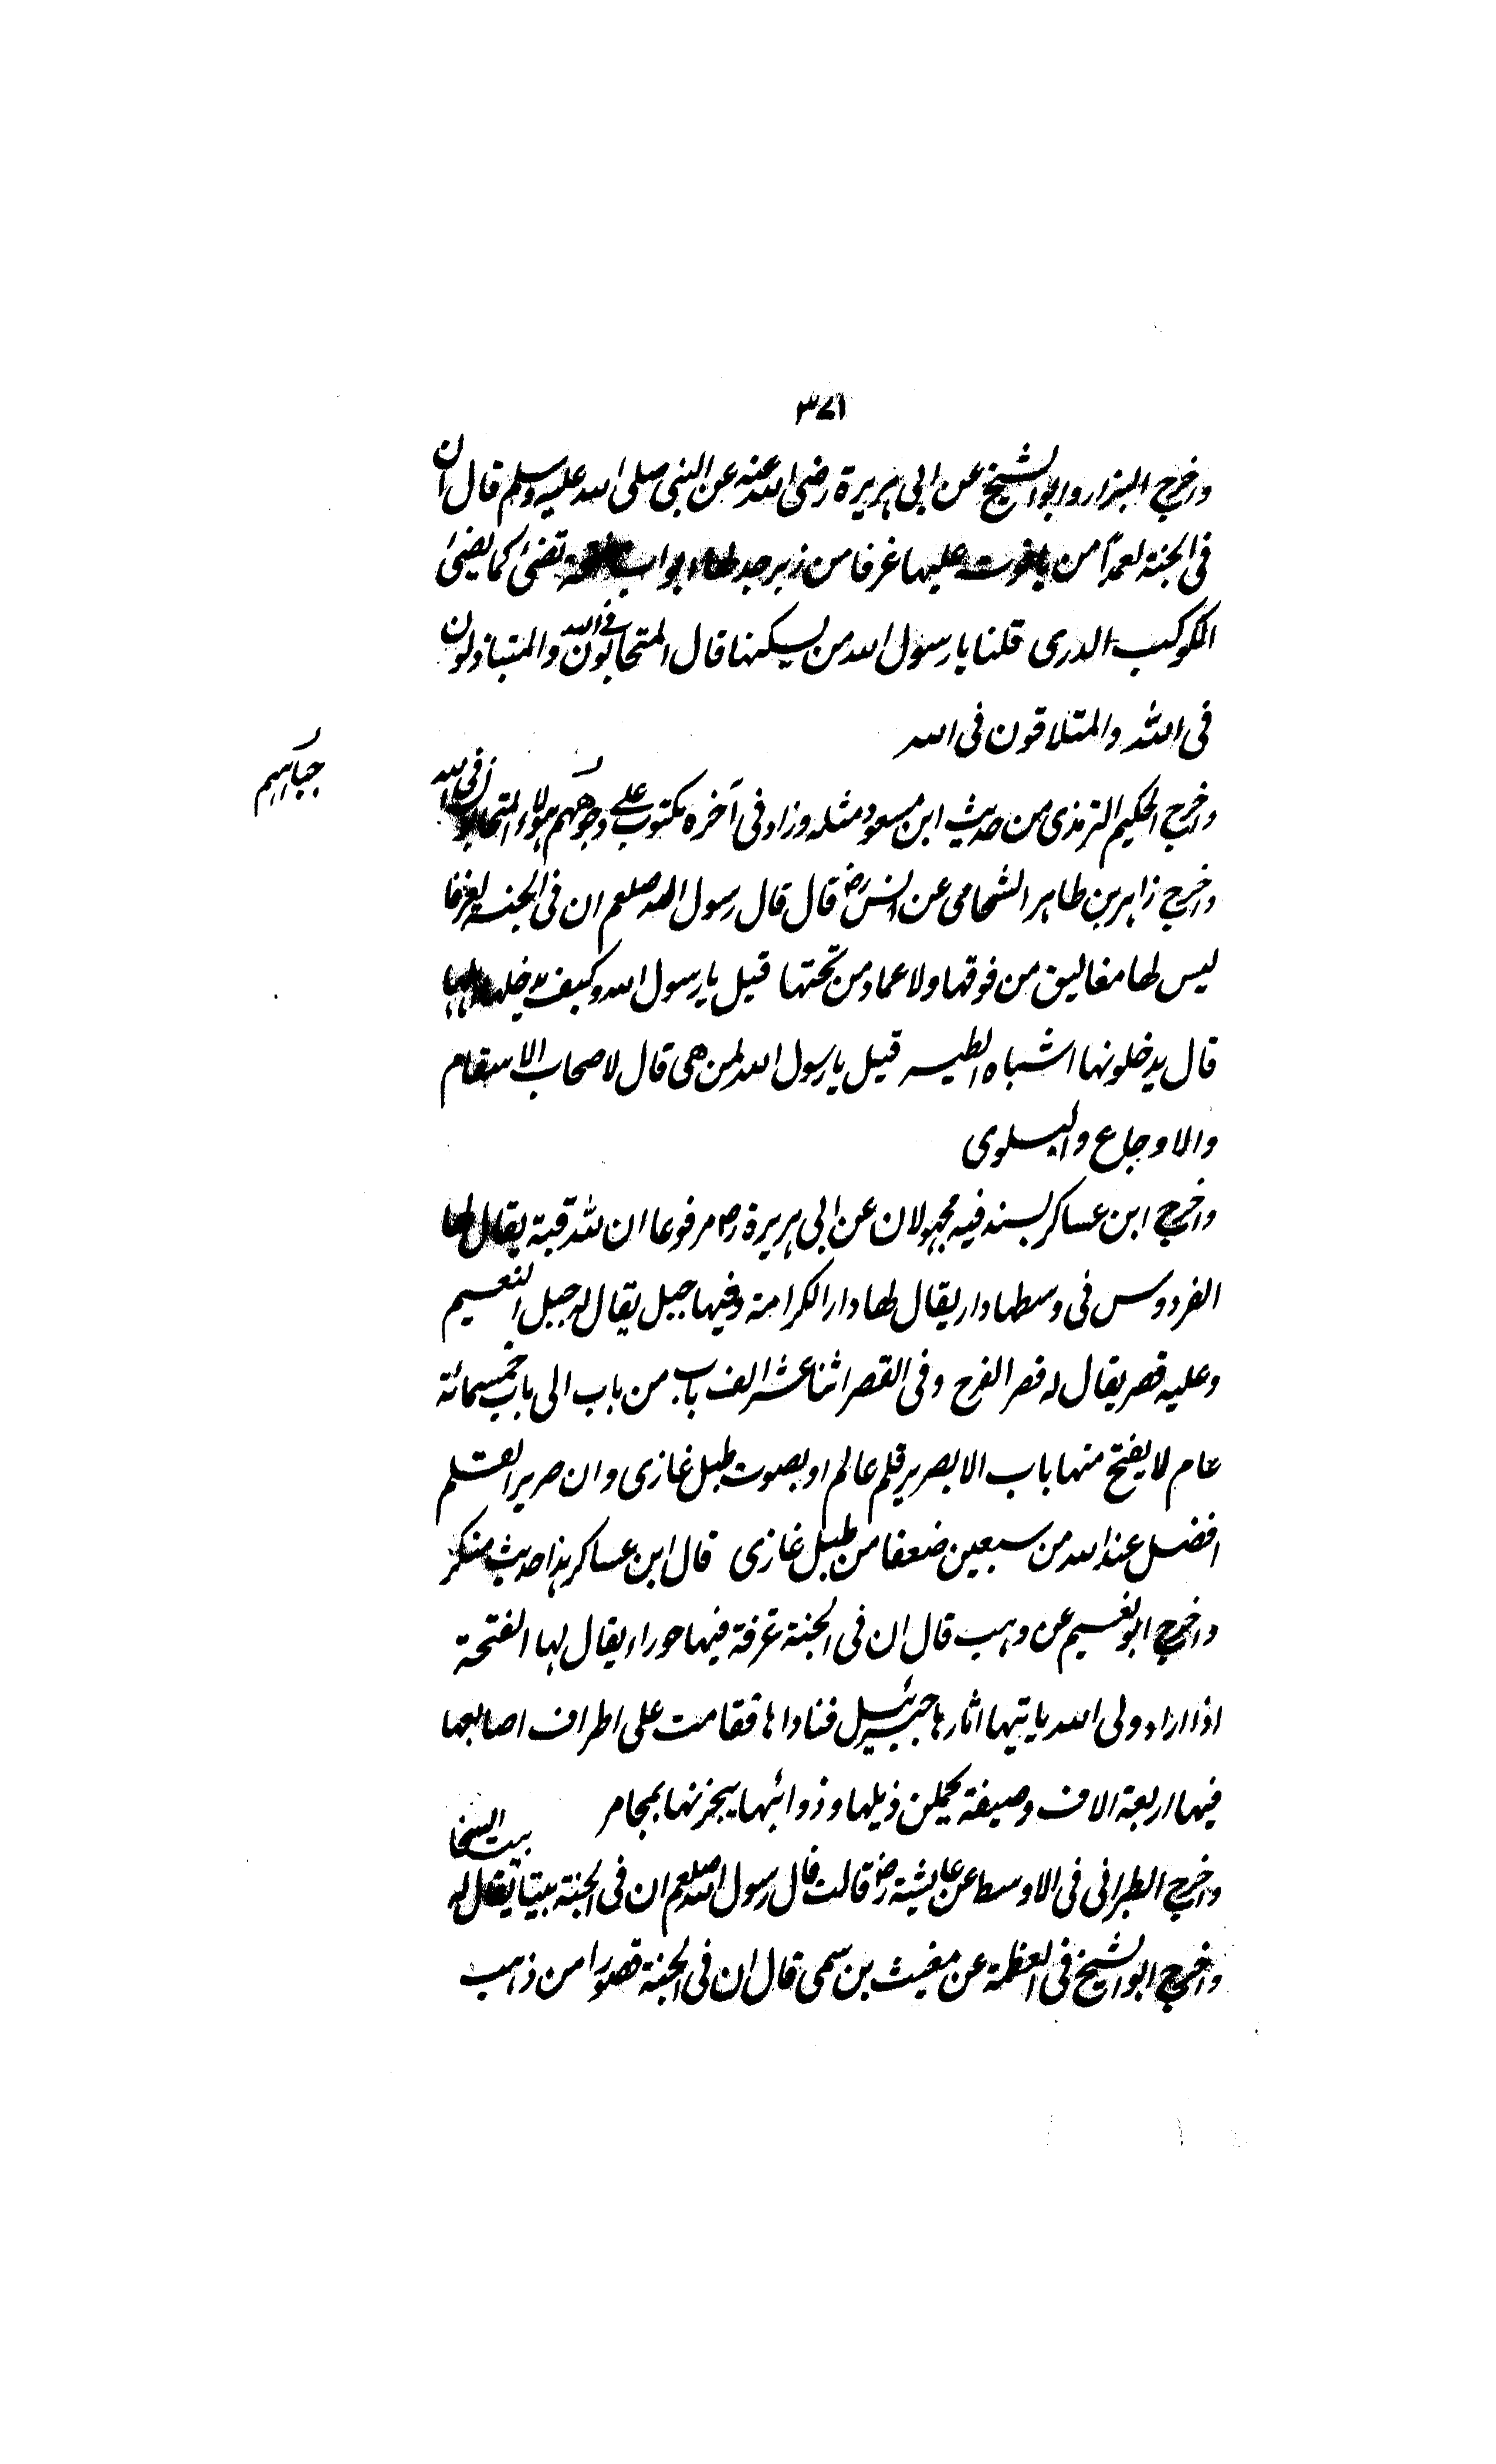 ٣٧١
واخرج البزار وابو الشيخ عن ابی ہریرة رضی الله عنه عن النبی صلی الله علیه وسلم قال ان
فی الجنة لعمدًا من یاقوت علیها غرفا من زبرجد لها ابواب تضئ کما یضئ
الکوکب الدری قلنا یا رسول الله من یسکنها قال المتحابون فی الله والمتباذلون
فی الله والمتلاقون فی الله
واخرج الحکیم الترمذی من حدیث ابن مسعود مثله وزاد فی آخره مکتوب علی وجوههم هؤلاء المتحابون فی الله
جباههم
واخرج زاہر بن طاہر الشحامی عن انس رض قال قال رسول الله صلعم ان فی الجنة لغرفا
لیس لها مغالیق من فوقها ولا عماد من تحتها قیل یا رسول الله وکیف یدخلها اهلها
قال یدخلونها اشباه الطیر قیل یا رسول الله لمن هی قال لاصحاب الاسقام
والاوجاع والبلوی
واخرج ابن عساکر بسند فیه مجهولان عن ابی ہریرة رض مرفوعا ان لله قبة یقال لها
الفردوس فی وسطها دار یقال لها دار الکرامة وفیها جبل یقال له جبل النعیم
وعلیه قصر یقال له قصر الفرح وفی القصر اثنا عشر الف باب من باب الی باب خمسمائة
عام لا یفتح منها باب الا بصریر قلم عالم او بصوت طبل غازی وان صریر القلم
افضل عند الله من سبعین ضعفا من طبل غازی قال ابن عساکر ہذا حدیث منکر
واخرج ابو نعیم عن وہب قال ان فی الجنة غرفة فیها حوراء یقال لہا الغنجة
اذا اراد ولی الله یاتیها اثارها جبرئیل فناداها فقامت علی اطراف اصابعها
فیها اربعة الاف وصیفة یحملن ذیلها وذوائبها یبخرنها بمجامر
واخرج الطبرانی فی الاوسط عن عایشة رض قالت قال رسول الله صلعم ان فی الجنة بیتا یقال له بیت السخا
واخرج ابو الشیخ فی العظمة عن مغیث بن سمی قال ان فی الجنة قصورا من ذہب